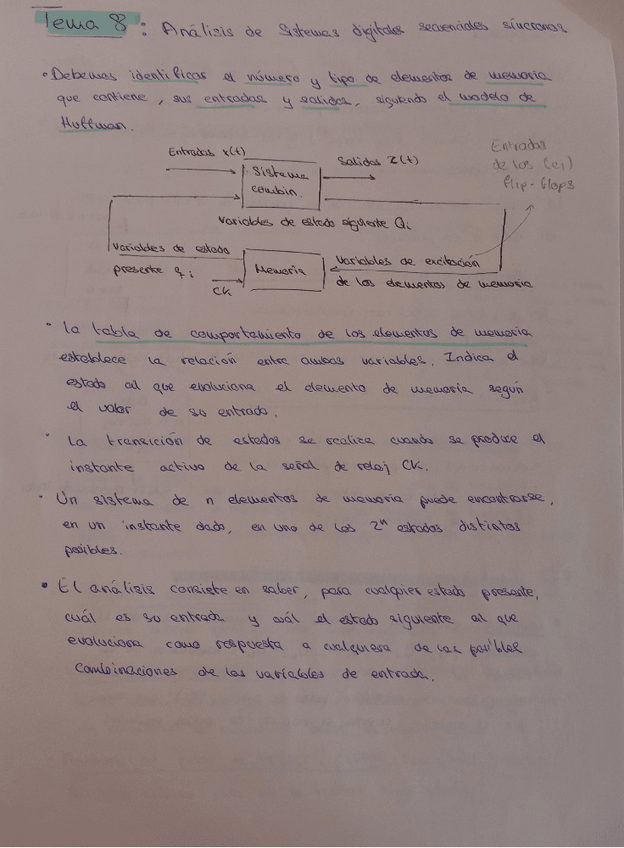 Tema 8: Análisis de Sistemas digitales secuenciales síncronos
• Debemos identificar el número y tipo de elementos de memoria
que contiene, sus entradas y salidas, siguiendo el modelo de
Huffman.
Entradas x(t)
Sistema
combin.
Salidas Z(t)
Entradas
de los (el)
flip-flops
Variables de estado siguiente Qi
Variables de estado
presente qi
CK
Memoria
Variables de excitación
de los elementos de memoria
• La tabla de comportamiento de los elementos de memoria
establece la relación entre ambas variables. Indica el
estado al que evoluciona el elemento de memoria según
el valor de su entrada.
• La transición de estados se realiza cuando se produce el
instante activo de la señal de reloj CK.
• Un sistema de n elementos de memoria puede encontrarse,
en un instante dado, en uno de los 2ⁿ estados distintos
posibles.
• El análisis consiste en saber, para cualquier estado presente,
cuál es su entrada y cuál el estado siguiente al que
evoluciona como respuesta a cualquiera de las posibles
combinaciones de las variables de entrada.